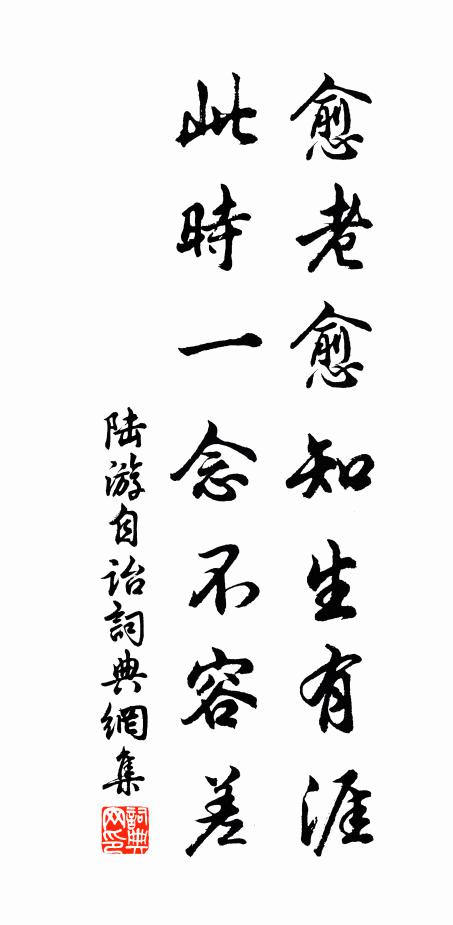 愈老愈知生有涯
此時一念不容差
陸游自詒詞典網集
詞典網印